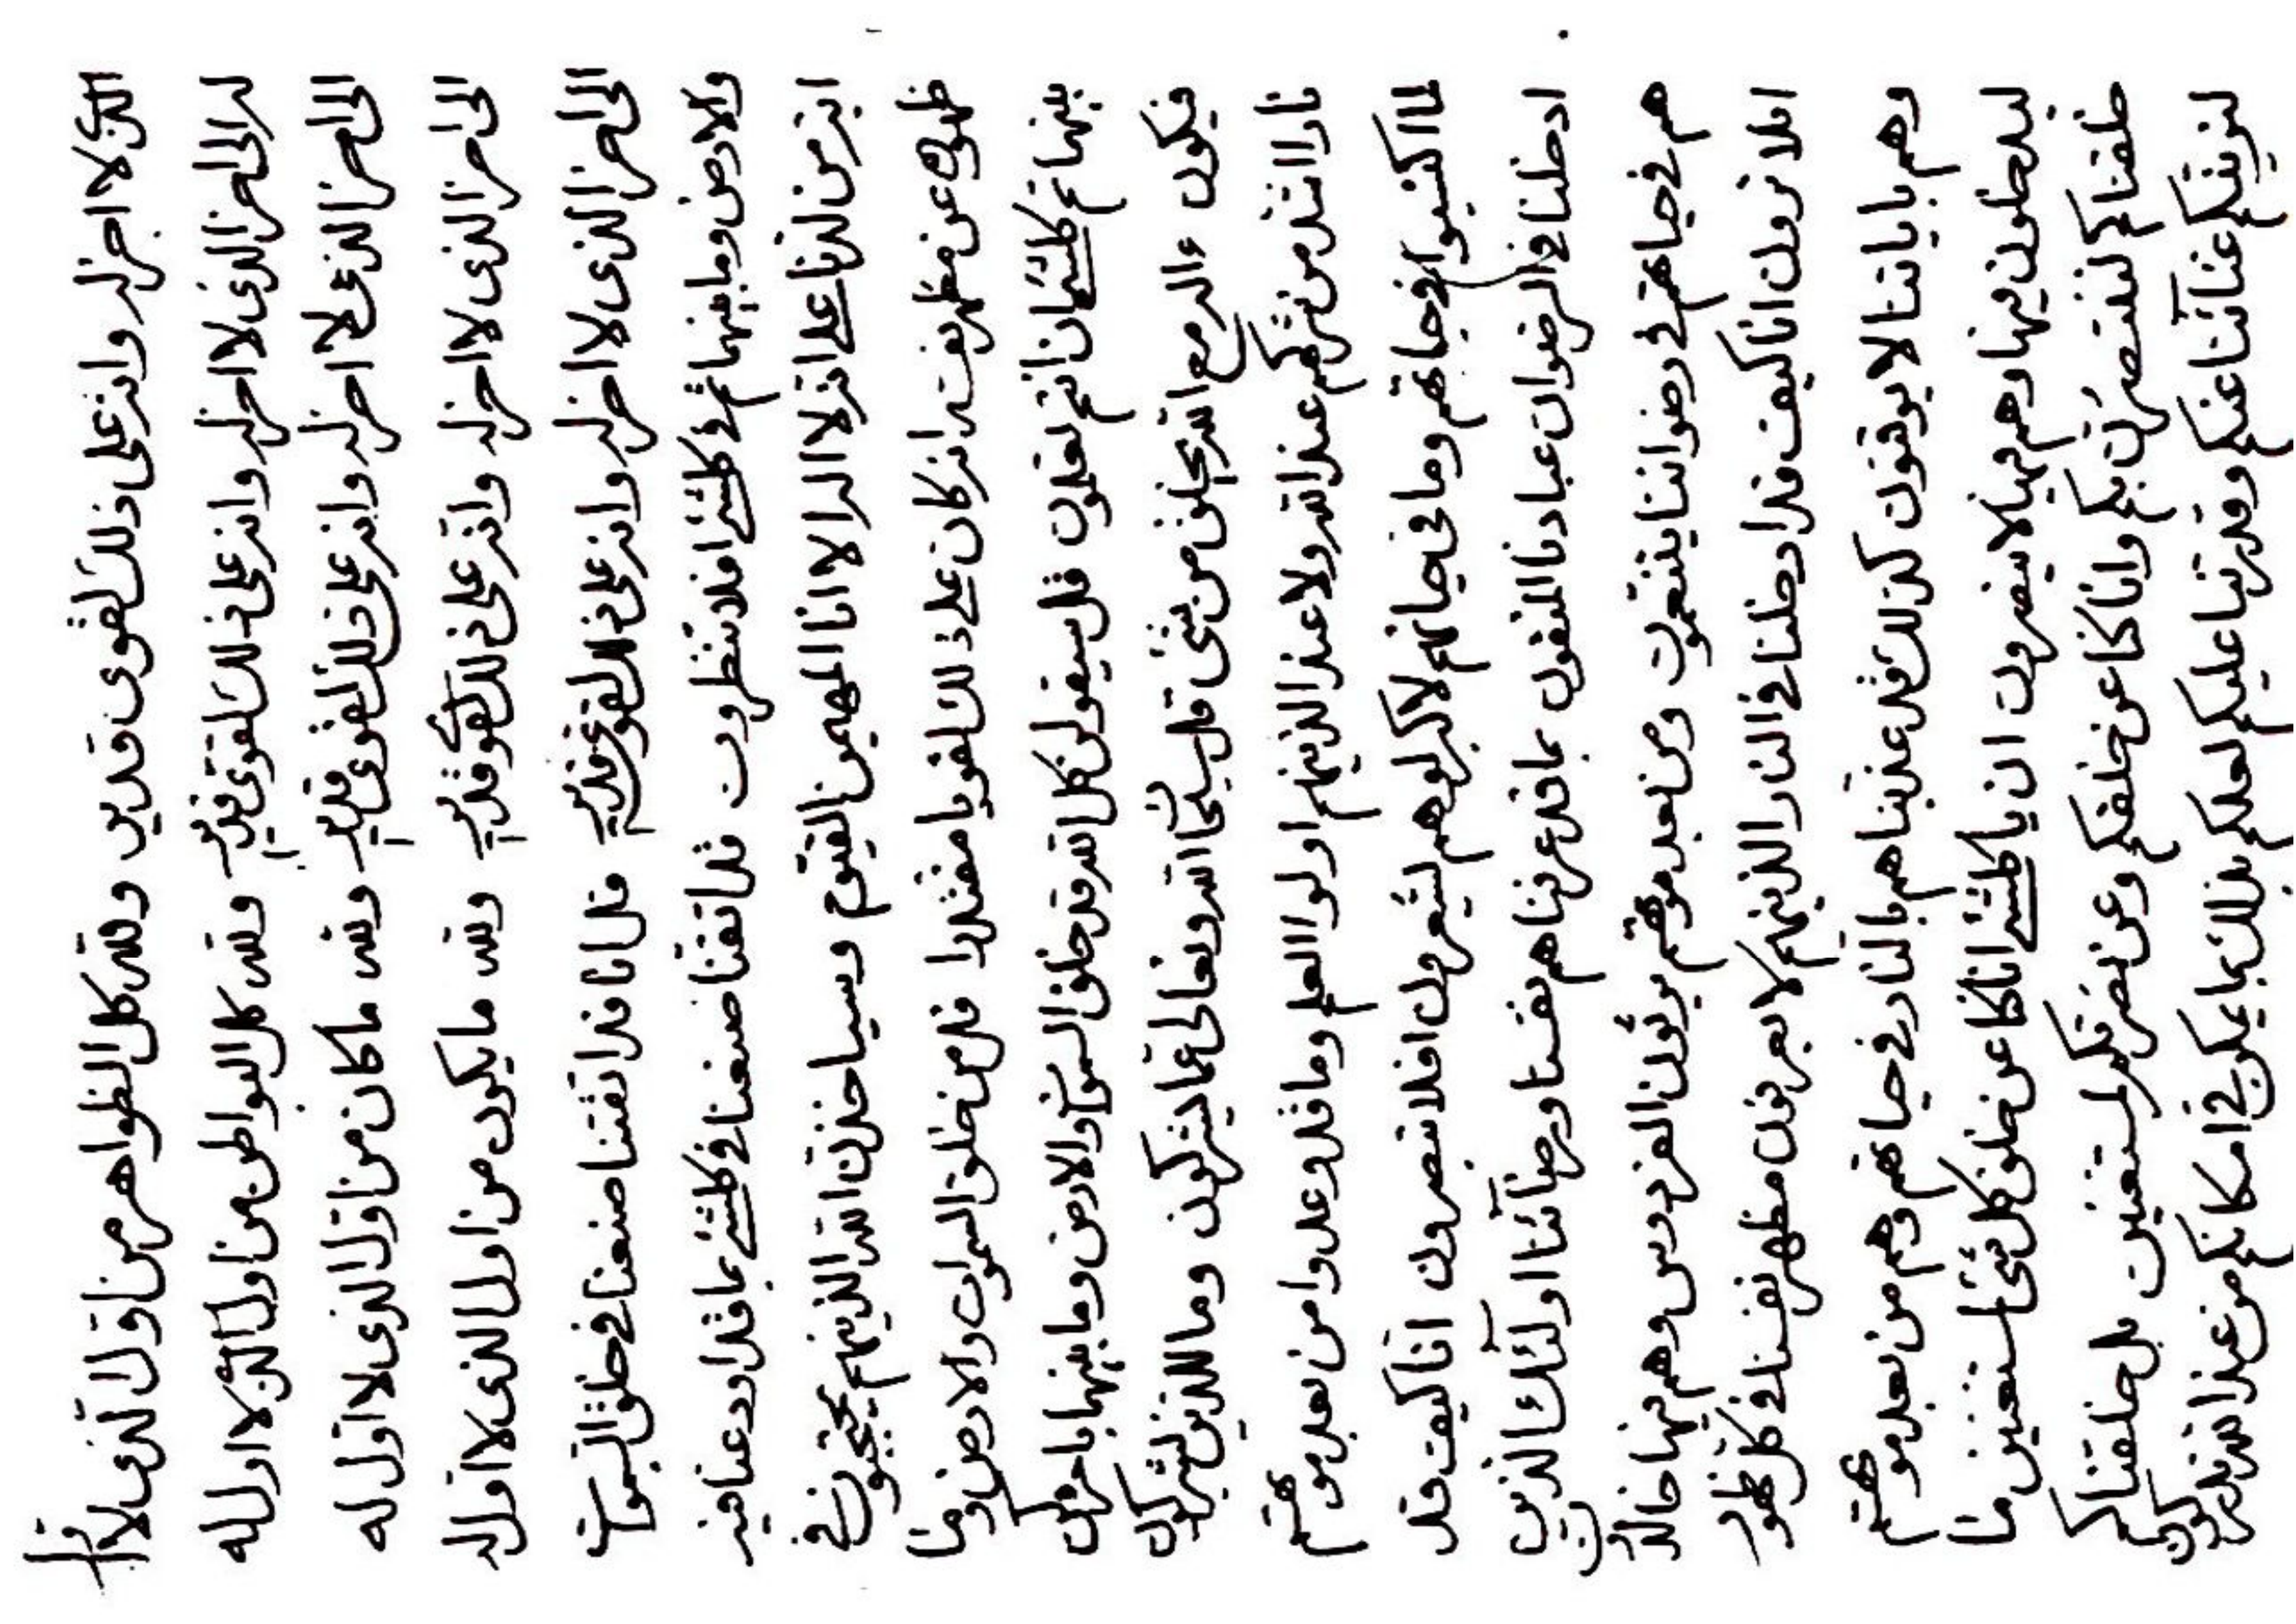 الذى لا اخر له وانه على ذلك لقوى قدير ولله كل الظواهر من اول الذى لا اول
له الى اخر الذى لا اخر له وانه على ذلك لقوى قدير ولله كل البواطن من اول الذى لا اول له
الى اخر الذى لا اخر له وانه على ذلك لقوى قدير ولله ما كان من اول الذى لا اول له
الى اخر الذى لا اخر له وانه على ذلك لقوى قدير ولله ما يكون من اول الذى لا اول له
الى اخر الذى لا اخر له وانه على ذلك لقوى قدير قل انا قد اتقنا صنعنا فى خلق السموات
والارض وما بينهما ثم فى كلشئ افلا تنظرون قل اتقنا صنعنا فى كلشئ بما قد اودعنا فيه
انه من لدنا على انه لا اله الا انا المهيمن القيوم وسياخذن الله الذينهم يحتجبون فى
ظهورى عن مظهر نفسه انه كان على ذلك لقويا مقتدرا قل من خلق السموات والارض وما
بينهما ثم كلشئ ان انتم تعلمون قل سيقولن كل الله قد خلق السموات والارض وما بينهما بامره كن
فيكون ءاله مع الله يخلق من شئ قل سبحان الله وتعالى عما يشركون وما للذين يشركون
نارا اشد من شركهم عند الله ولا عند الذينهم اولوا العلم وما قد وعدوا من بعد موتهم
لما اكتسبوا فى حياتهم وما فى حياتهم لاكبر لو هم ليشعرون افلا تبصرون انا كيف قد
ادخلنا فى الرضوان عبادنا المتقون بما قد عرفناهم نفسنا ورضائنا اولئك الذين
هم فى حياتهم فى رضواننا يتنعمون ومن بعد موتهم يرثون الفردوس وهم فيها خالدون
افلا ترون انا كيف قد ادخلنا فى النار الذينهم لا يعرفون مظهر نفسنا فى كل ظهور
وهم باياتنا لا يوقنون كذلك قد عذبناهم بالنار فى حياتهم وهم من بعد موتهم
ليدخلون فيها وهم فيها لا ينصرون ان يا كلشئ انا كنا عن خلق كل شئ لمستغنين ما
خلقناكم لننتصرن بكم وانا كنا عن خلقكم وعن نصرتكم لمستغنين بل خلقناكم
لنرينكم غنائنا عنكم وقدرتنا عليكم لعلكم بذلك بما يمكن فى امكانكم من عند الله تدركون